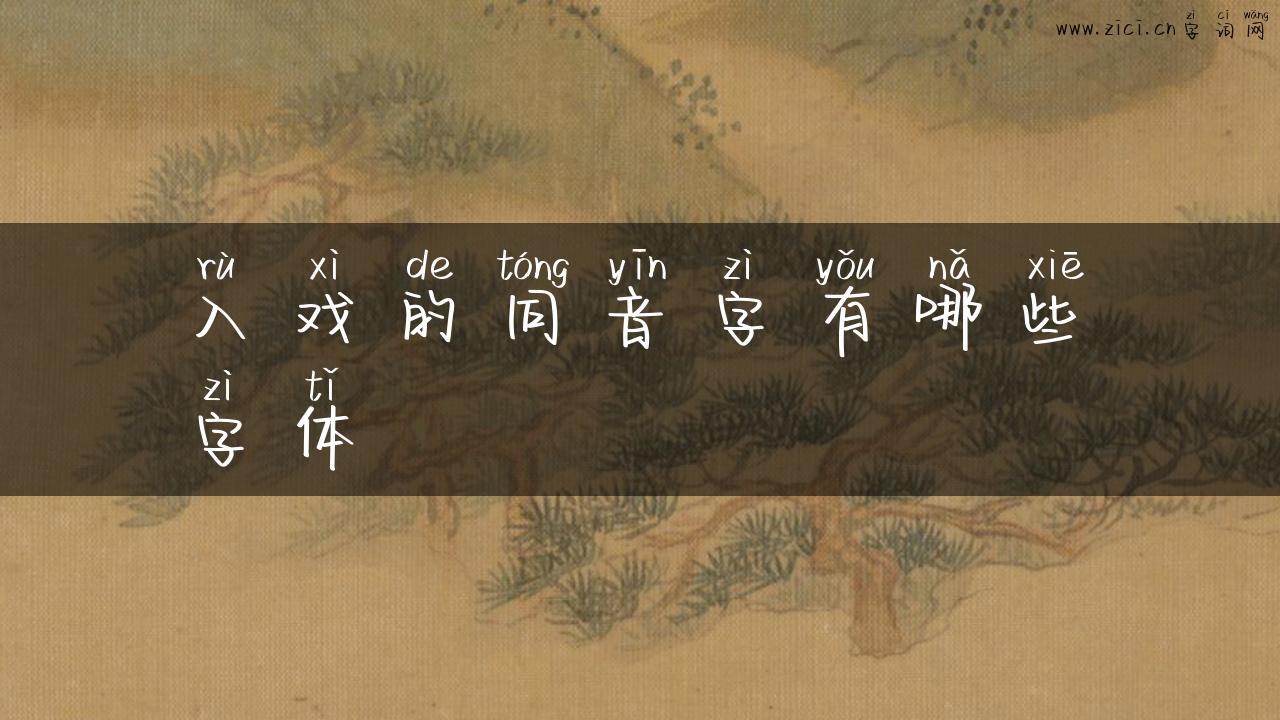 zì cí wǎng
www.zīcī.cn 字 词 网
rù xì de tóng yīn zì yǒu nǎ xiē
入 戏 的 同 音 字 有 哪 些
zì tǐ
字 体